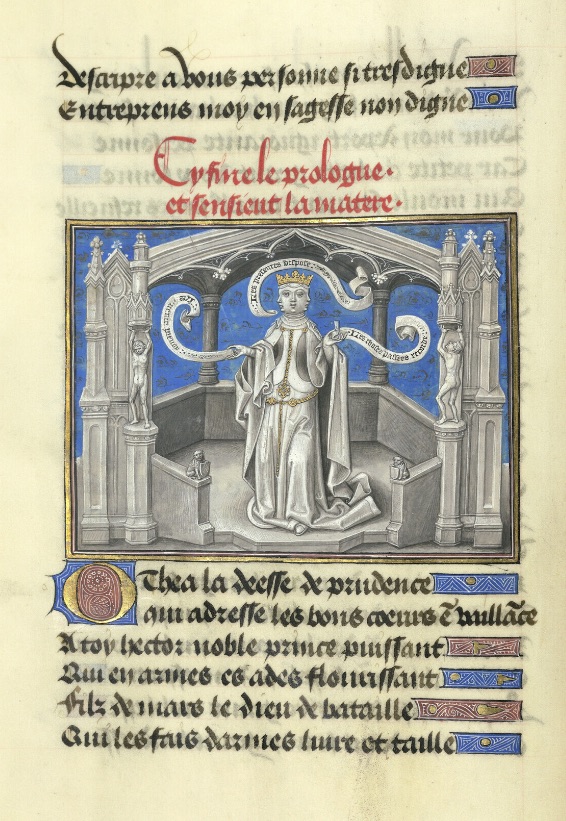 Descripre a vous personne si tresdigne
Entreprens moy en sagesse non digne
Cy fine le prologue.
et sensieut la matere.
Les presentes dispose
Les choses passees recorde
Othea la deesse de prudence
qui adresse les bons coeurs ē vaillāce
A toy hector noble prince puissant
Qui en armes es ades flourissant
Filz de mars le dieu de bataille
Qui les fais darmes liure et taille